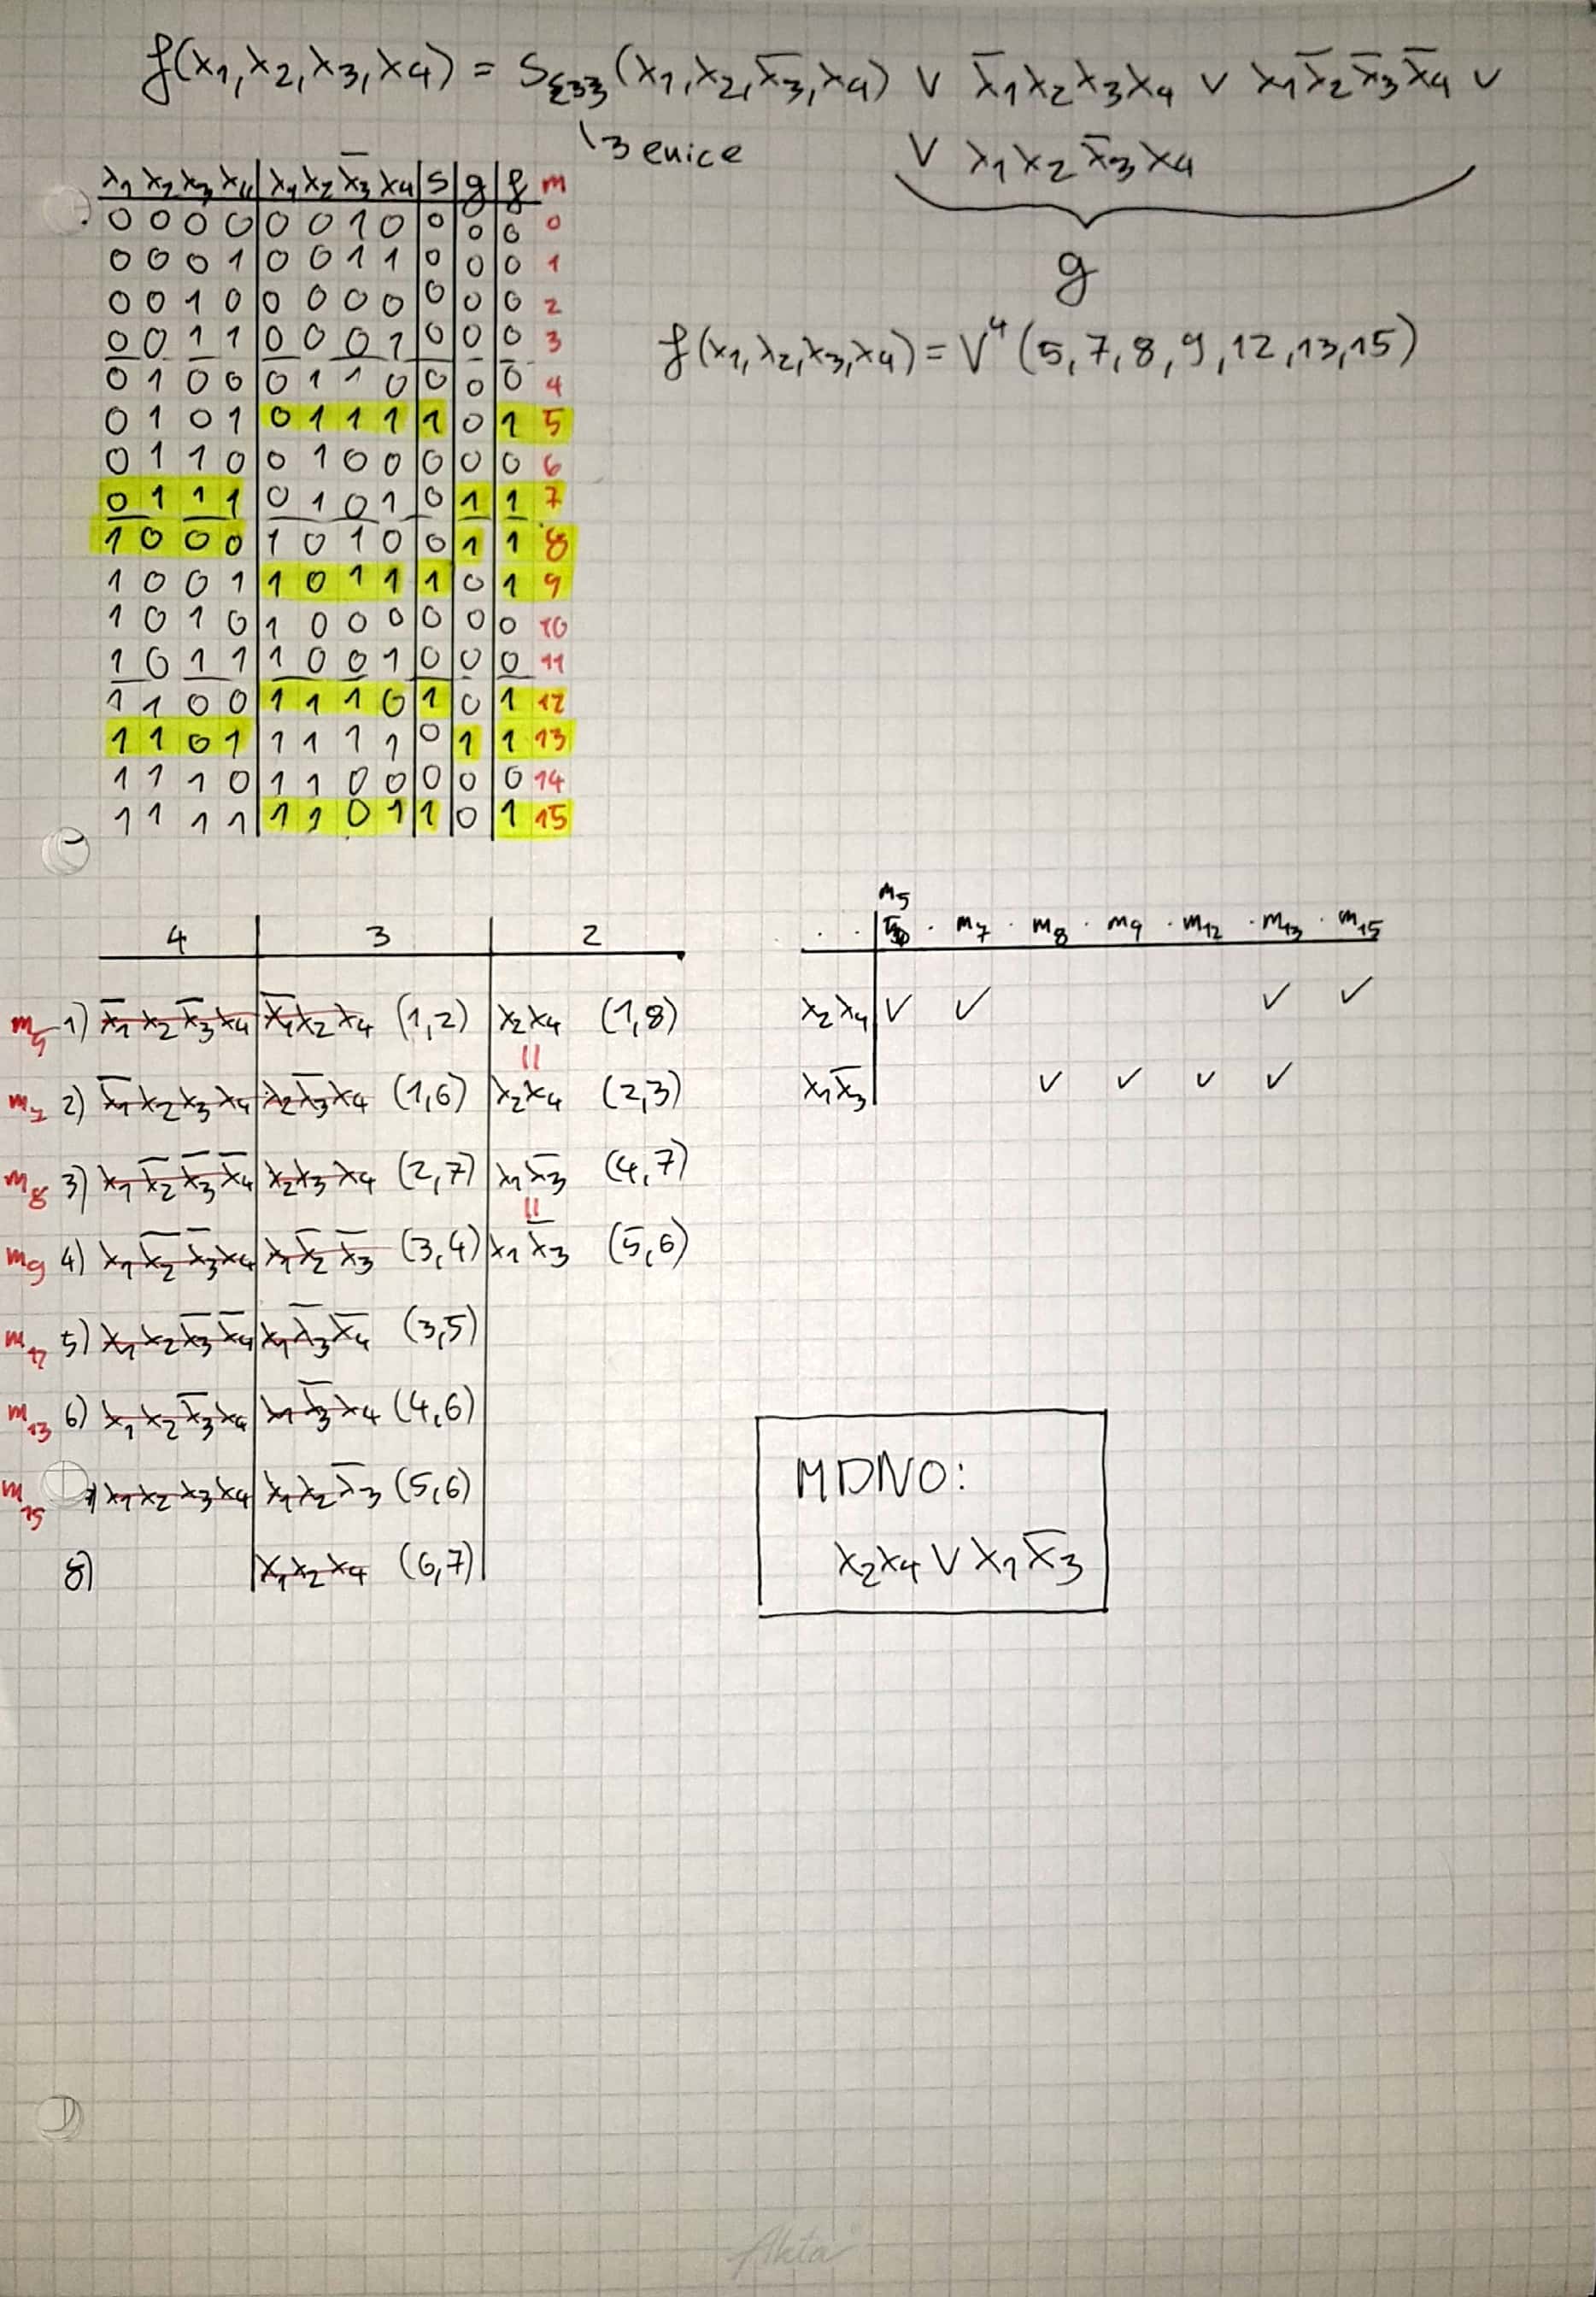 f(x₁,x₂,x₃,x₄) = S{3}(x₁,x₂,x̅₃,x₄) ∨ x̅₁x₂x₃x₄ ∨ x₁x̅₂x̅₃x̅₄ ∨
3 enice
∨ x₁x₂x̅₃x₄
g
f(x₁,x₂,x₃,x₄) = V⁴(5,7,8,9,12,13,15)
x₁ x₂ x₃ x₄ | x₁ x₂ x̅₃ x₄ | S | g | f m
0 0 0 0 | 0 0 1 0 | 0 | 0 | 0 0
0 0 0 1 | 0 0 1 1 | 0 | 0 | 0 1
0 0 1 0 | 0 0 0 0 | 0 | 0 | 0 2
0 0 1 1 | 0 0 0 1 | 0 | 0 | 0 3
0 1 0 0 | 0 1 1 0 | 0 | 0 | 0 4
0 1 0 1 | 0 1 1 1 | 1 | 0 | 1 5
0 1 1 0 | 0 1 0 0 | 0 | 0 | 0 6
0 1 1 1 | 0 1 0 1 | 0 | 1 | 1 7
1 0 0 0 | 1 0 1 0 | 0 | 1 | 1 8
1 0 0 1 | 1 0 1 1 | 1 | 0 | 1 9
1 0 1 0 | 1 0 0 0 | 0 | 0 | 0 10
1 0 1 1 | 1 0 0 1 | 0 | 0 | 0 11
1 1 0 0 | 1 1 1 0 | 1 | 0 | 1 12
1 1 0 1 | 1 1 1 1 | 0 | 1 | 1 13
1 1 1 0 | 1 1 0 0 | 0 | 0 | 0 14
1 1 1 1 | 1 1 0 1 | 1 | 0 | 1 15
4 | 3 | 2
m₅ 1) x̅₁x₂x̅₃x₄ | x̅₁x₂x₄ (1,2) | x₂x₄ (1,8)
=
m₇ 2) x̅₁x₂x₃x₄ | x₂x̅₃x₄ (1,6) | x₂x₄ (2,3)
m₈ 3) x₁x̅₂x̅₃x̅₄ | x₂x₃x₄ (2,7) | x₁x̅₃ (4,7)
=
m₉ 4) x₁x̅₂x̅₃x₄ | x₁x̅₂x̅₃ (3,4) | x₁x̅₃ (5,6)
m₁₂ 5) x₁x₂x̅₃x̅₄ | x₁x̅₃x̅₄ (3,5)
m₁₃ 6) x₁x₂x̅₃x₄ | x₁x̅₃x₄ (4,6)
m₁₅ x₁x₂x₃x₄ | x₁x₂x̅₃ (5,6)
8) x₁x₂x₄ (6,7)
m₅ m₇ m₈ m₉ m₁₂ m₁₃ m₁₅
x₂x₄ | ✓ ✓ ✓ ✓
x₁x̅₃ | ✓ ✓ ✓ ✓
MDNO:
x₂x₄ ∨ x₁x̅₃
Akta